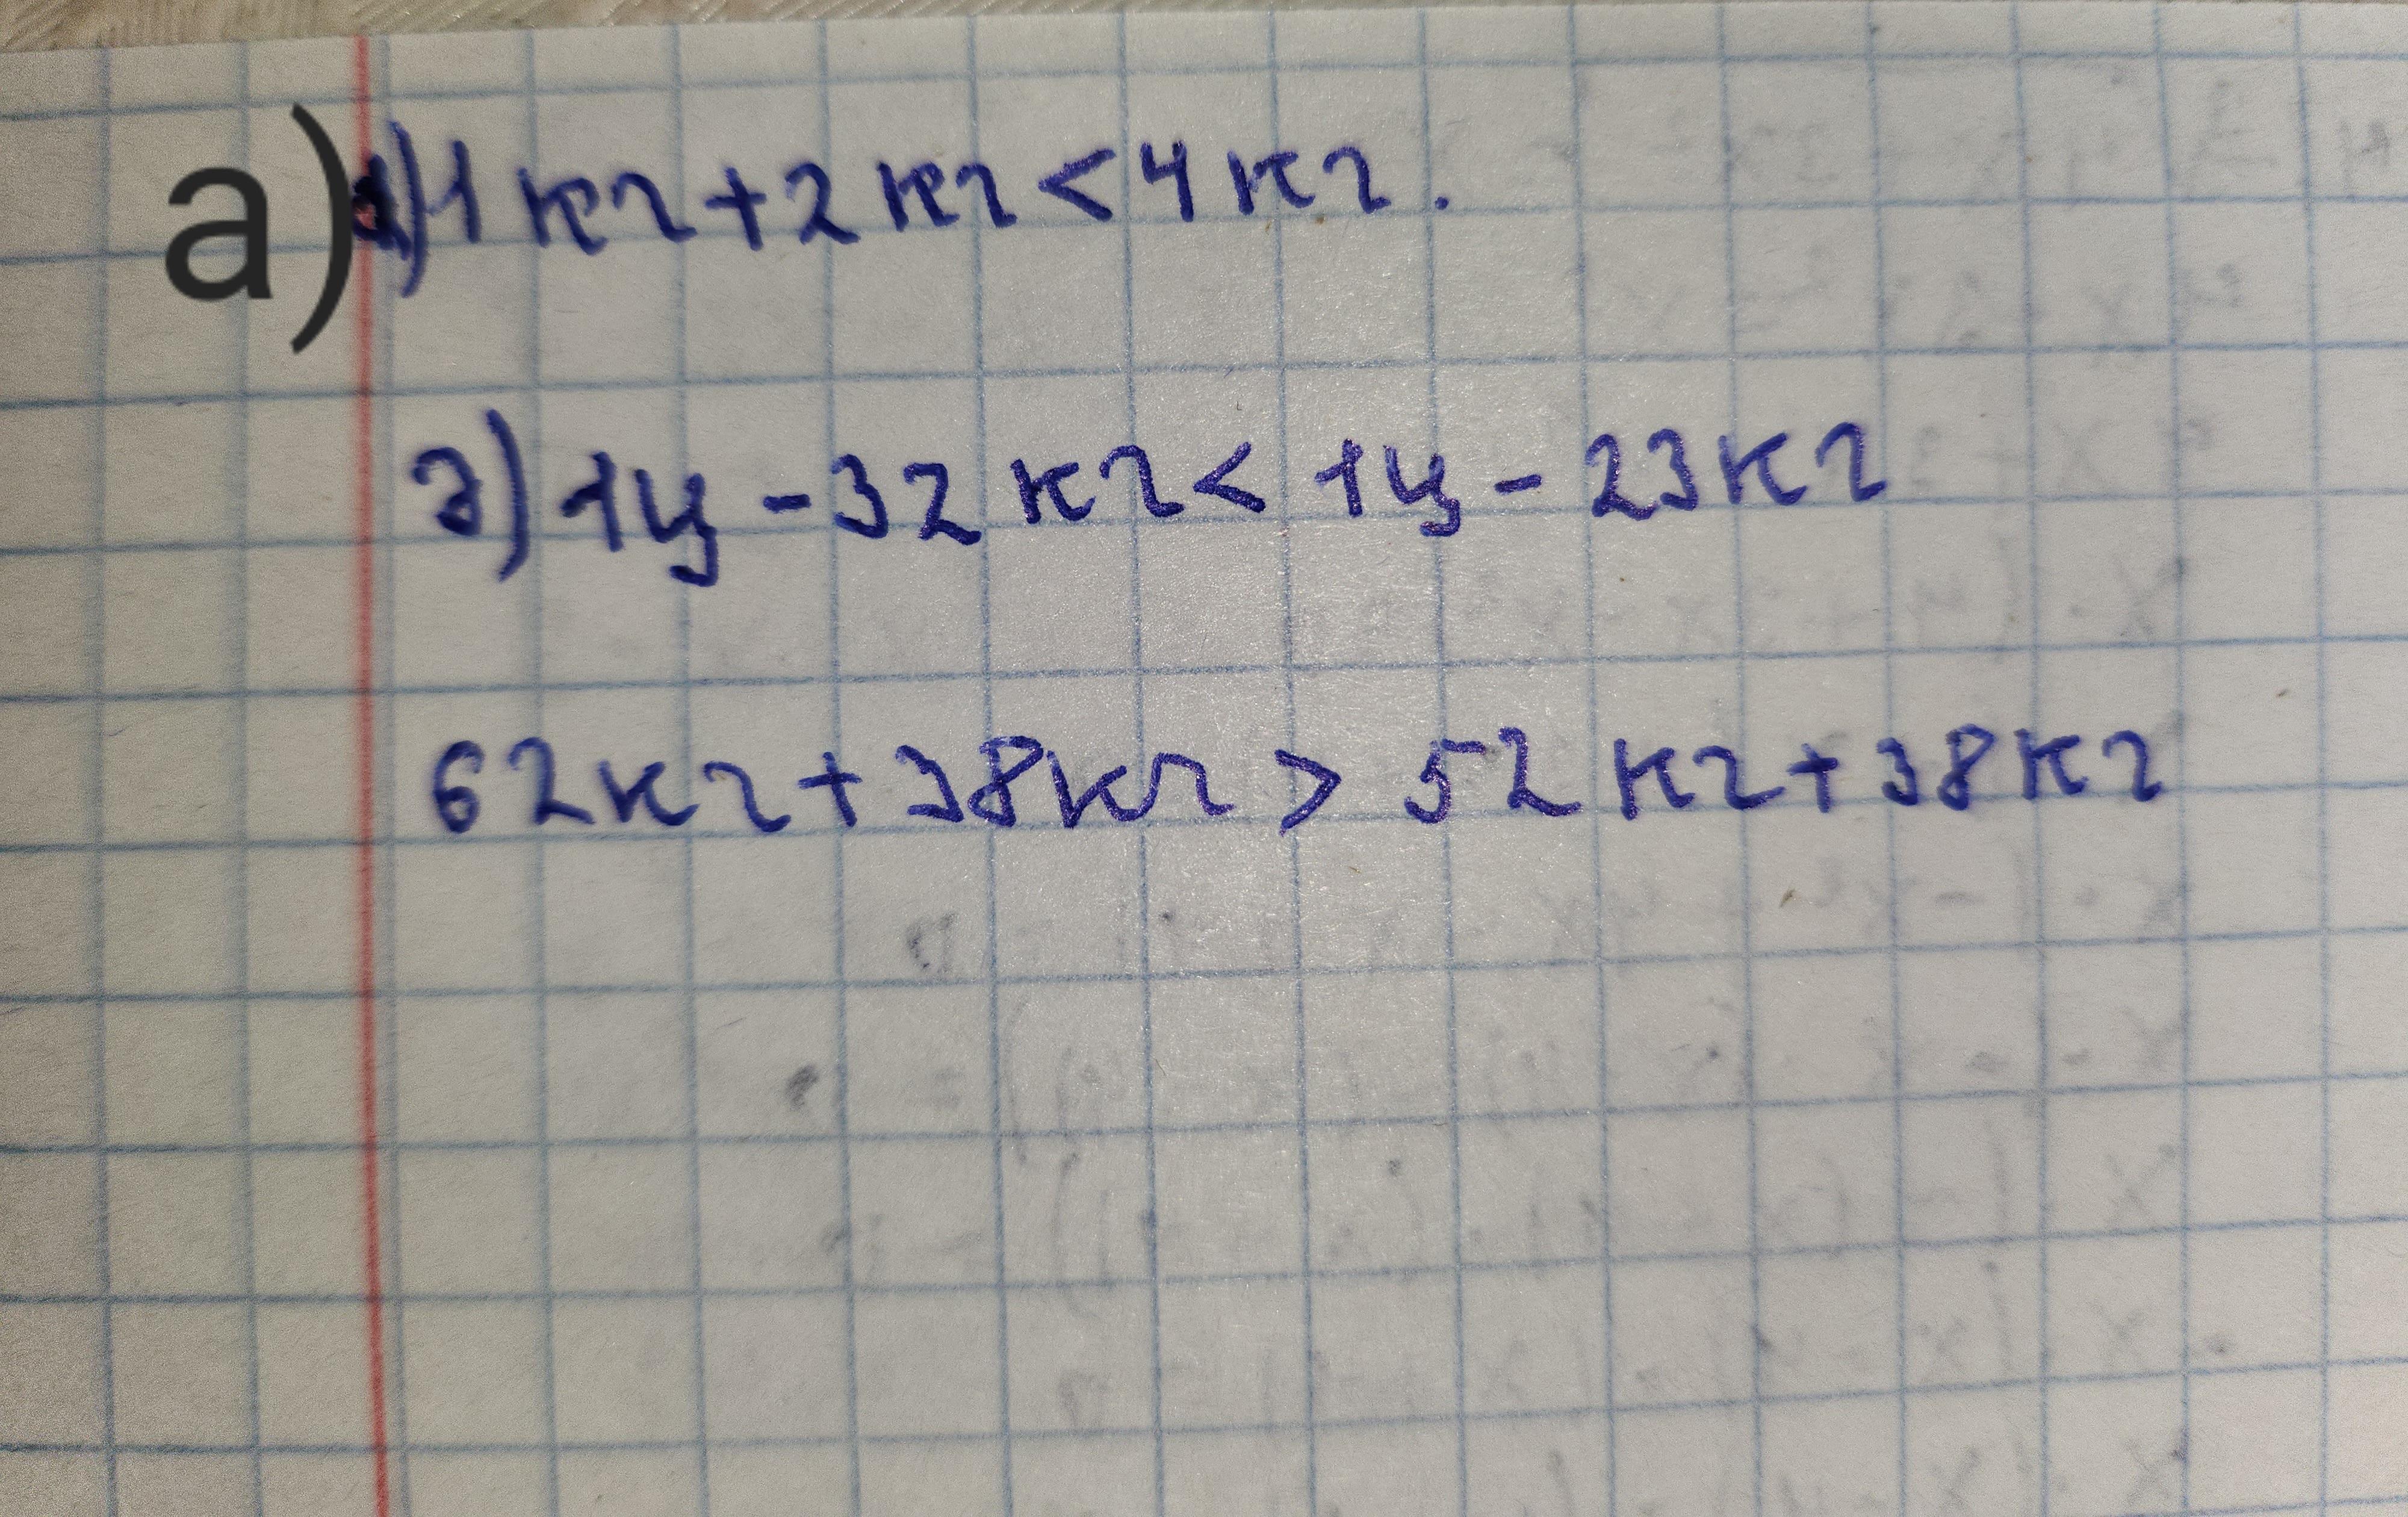 а) 1 кг + 2 кг < 4 кг.
2) 1ц - 32 кг < 1ц - 23 кг
62 кг + 38 кг > 52 кг + 38 кг